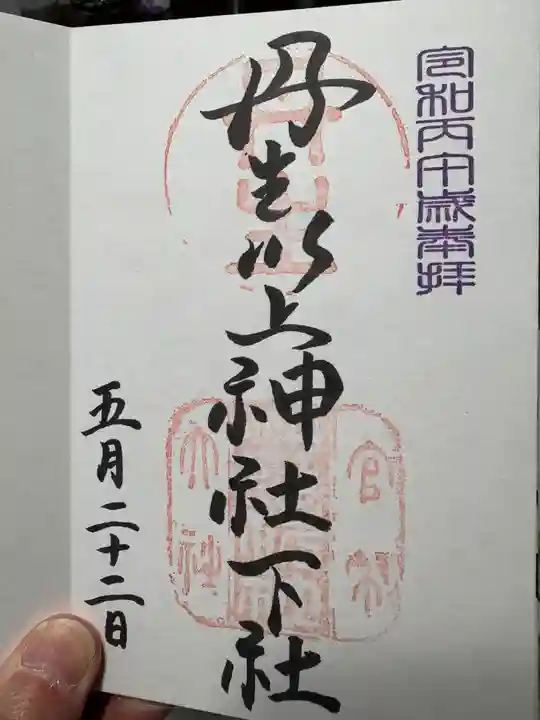 令和丙午歳奉拝
丹生川上神社下社
五月二十二日
官幣
大社